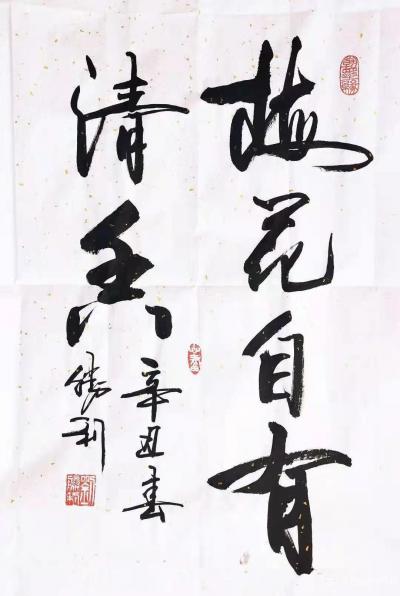 梅花自有
清香
辛丑春
胜利